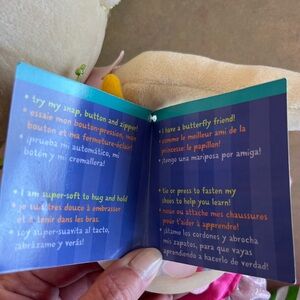 • try my snap, button and zipper!
• essaie mon bouton-pression, mon
bouton et ma fermeture-éclair!
• ¡prueba mi automático, mi
botón y mi cremallera!
• I am super-soft to hug and hold
• je suis très douce à embrasser
et à tenir dans les bras.
• soy super-suavita al tacto,
¡abrázame y verás!
• I have a butterfly friend!
• comme le meilleur ami de la
princesse: le papillon!
• ¡tengo una mariposa por amiga!
• tie or press to fasten my
shoes to help you learn!
• noue ou attache mes chaussures
pour t'aider à apprendre!
• ¡átame los cordones y abrocha
mis zapatos, para que vayas
aprendiendo a hacerlo de verdad!